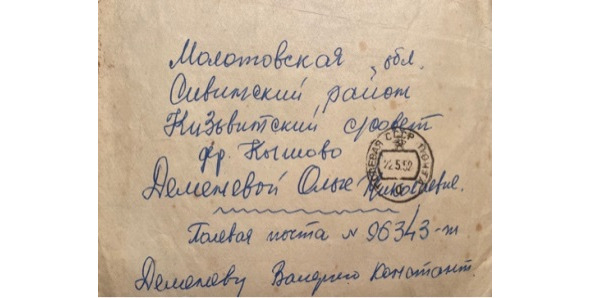 Молотовская обл.
Сивинский район
Кизьвитский с/совет
др. Кышово
Деменевой Ольге Николаевне.
ПОЛЕВАЯ СССР ПОЧТА
22.5.52
Полевая почта N 96343-т
Деменеву Валерию Констант.